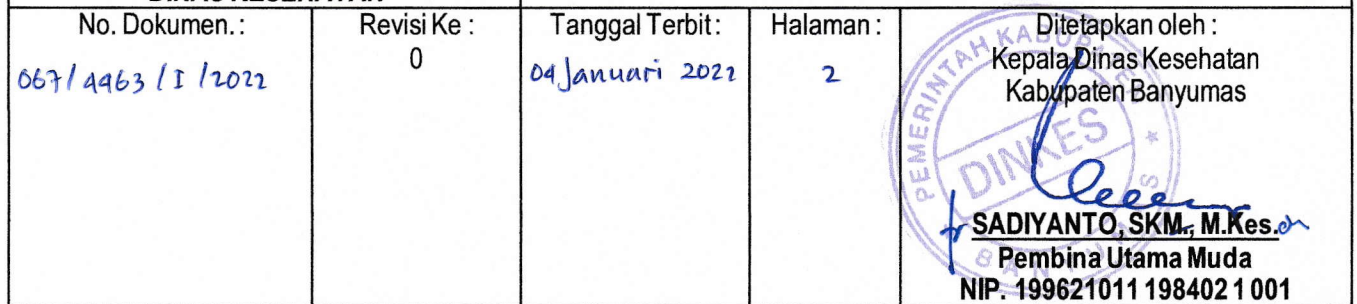 DINAS KESEHATAN
No. Dokumen. :
067/4463/I/2022
Revisi Ke :
0
Tanggal Terbit:
04 Januari 2022
Halaman :
2
Ditetapkan oleh :
Kepala Dinas Kesehatan
Kabupaten Banyumas
PEMERINTAH KABUPATEN
DINKES
BANYUMAS
SADIYANTO, SKM., M.Kes.
Pembina Utama Muda
NIP. 199621011 198402 1 001